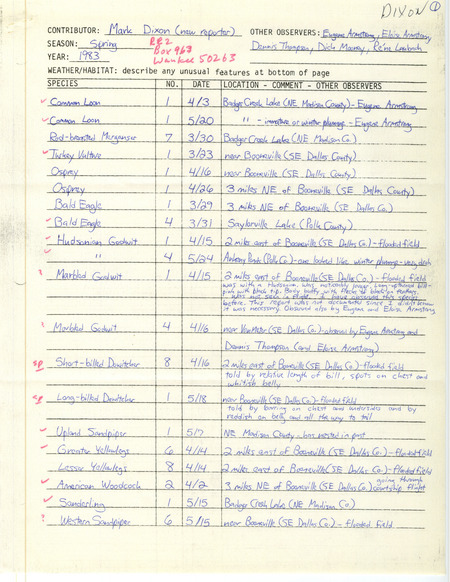 DIXON 1
CONTRIBUTOR: Mark Dixon (new reporter) OTHER OBSERVERS: Eugene Armstrong, Eloise Armstrong,
SEASON: Spring RR2 Dennis Thompson, Dick Mooney,
YEAR: 1983 Box 963
Waukee 50263
WEATHER/HABITAT: describe any unusual features at bottom of page
SPECIES NO. DATE LOCATION - COMMENT - OTHER OBSERVERS
Common Loon 1 4/3 Badger Creek Lake (NE Madison County) - Eugene Armstrong
Common Loon 1 5/20 " - immature or winter plumage - Eugene Armstrong
Red-breasted Merganser 7 3/30 Badger Creek Lake (NE Madison Co.)
Turkey Vulture 1 3/23 near Booneville (SE Dallas County)
Osprey 1 4/16 near Booneville (SE Dallas County)
Osprey 1 4/26 3 miles NE of Booneville (SE Dallas County)
Bald Eagle 1 3/29 3 miles NE of Booneville (SE Dallas Co.)
Bald Eagle 4 3/31 Saylorville Lake (Polk County)
Hudsonian Godwit 1 4/15 2 miles east of Booneville (SE Dallas Co.) - flooded field
" 4 5/24 Ankeny (Polk Co.) - one looked like winter plumage - very dark
? Marbled Godwit 1 4/15 2 miles east of Booneville (SE Dallas Co.) - flooded field
was with a Hudsonian. Was noticeably larger. Long upturned bill -
pink with black tip. Body buffy with flecks of black on feathers.
Was not seen in flight. I have observed this species
before. This report was not documented since I didn't
it was necessary. Observed also by Eugene and Eloise Armstrong
Marbled Godwit 4 4/16 near Van Meter (SE Dallas Co.) - observed by Eugene Armstrong and
Dennis Thompson (and Eloise Armstrong)
sp Short-billed Dowitcher 8 4/16 2 miles east of Booneville (SE Dallas Co.) - flooded field
told by relative length of bill, spots on chest and
whitish belly
sp Long-billed Dowitcher 1 5/18 near Booneville (SE Dallas Co.) - flooded field
told by barring on chest and undersides and by
reddish on belly and all the way to tail
Upland Sandpiper 1 5/7 NE Madison County - has nested in past
Greater Yellowlegs 6 4/14 2 miles east of Booneville (SE Dallas Co.) - flooded field
Lesser Yellowlegs 8 4/14 2 miles east of Booneville (SE Dallas Co.) - flooded field
American Woodcock 2 4/2 3 miles NE of Booneville (SE Dallas Co.) going through courtship flight
Sanderling 1 5/15 Badger Creek Lake (NE Madison Co.)
? Western Sandpiper 6 5/15 near Booneville (SE Dallas Co.) - flooded field